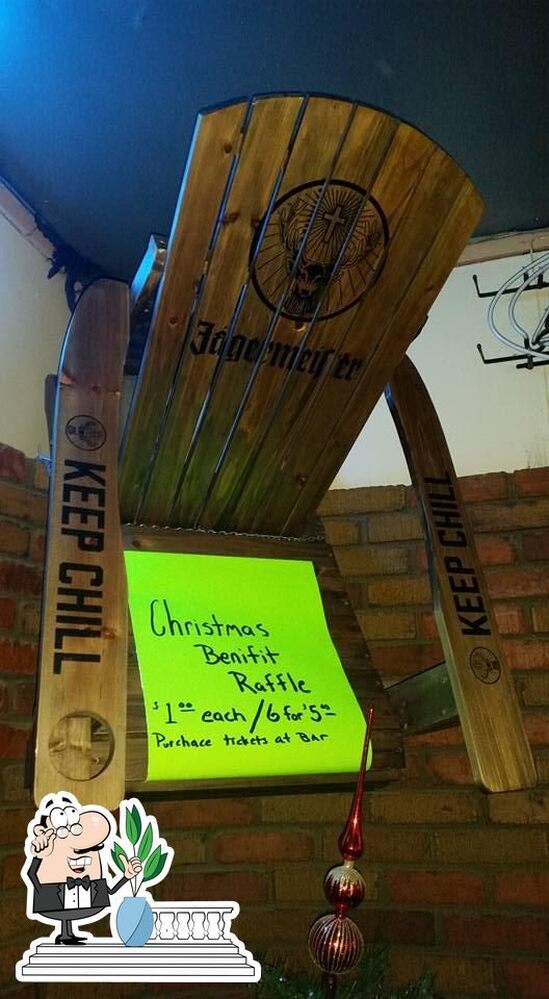 Jägermeister
KEEP CHILL
KEEP CHILL
Christmas
Benifit
Raffle
$1.00 each / 6 for $5.00
Purchace tickets at BAr